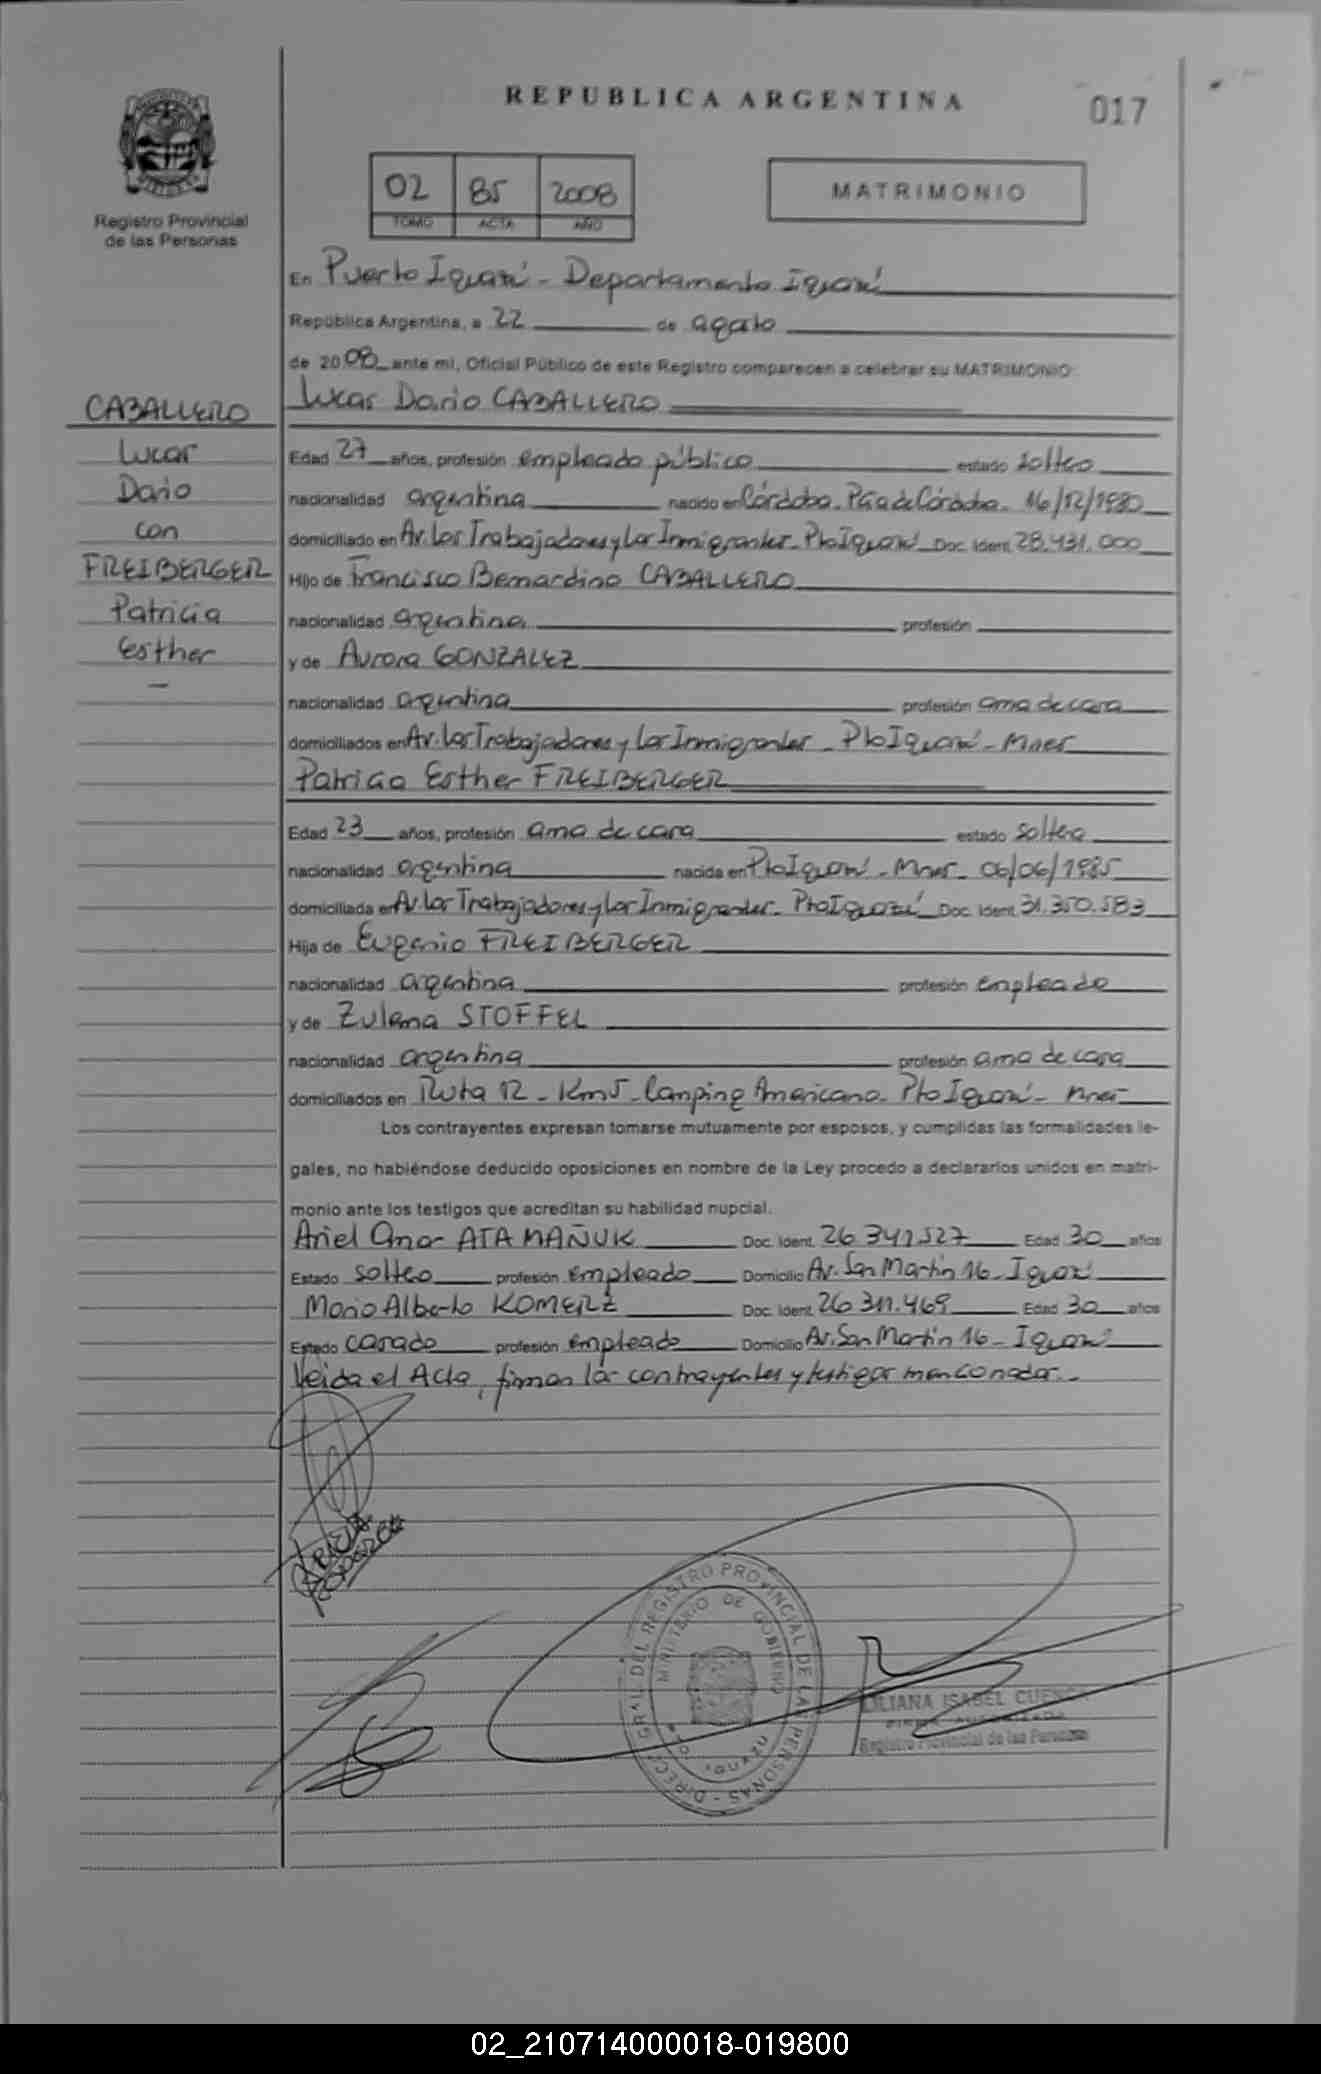 REPUBLICA ARGENTINA
017
Registro Provincial
de las Personas
02 85 2008
TOMO ACTA AÑO
MATRIMONIO
En Puerto Iguazú - Departamento Iguazú
República Argentina, a 22 de agosto
de 2008 ante mi, Oficial Público de este Registro comparecen a celebrar su MATRIMONIO:
CABALLERO
Lucas
Dario
con
FREIBERGER
Patricia
Esther
Lucas Dario CABALLERO
Edad 27 años, profesión empleado público estado soltero
nacionalidad argentina nacido en Córdoba - Pcia de Córdoba - 16/12/1980
domiciliado en Av. Los Trabajadores y Los Inmigrantes - Pto Iguazú Doc. Ident. 28.431.000
Hijo de Francisco Bernardino CABALLERO
nacionalidad argentina profesión
y de Aurora GONZALEZ
nacionalidad argentina profesión ama de casa
domiciliados en Av. Los Trabajadores y Los Inmigrantes - Pto Iguazú - Mnes
Patricia Esther FREIBERGER
Edad 23 años, profesión ama de casa estado soltera
nacionalidad argentina nacida en Pto Iguazú - Mnes - 06/06/1985
domiciliada en Av Los Trabajadores y Los Inmigrantes - Pto Iguazú Doc. Ident. 31.350.583
Hija de Eugenio FREIBERGER
nacionalidad argentina profesión empleado
y de Zulema STOFFEL
nacionalidad argentina profesión ama de casa
domiciliados en Ruta 12 - Km 5 - Camping Americano - Pto Iguazú - Mnes
Los contrayentes expresan tomarse mutuamente por esposos, y cumplidas las formalidades le-
gales, no habiéndose deducido oposiciones en nombre de la Ley procedo a declararlos unidos en matri-
monio ante los testigos que acreditan su habilidad nupcial.
Ariel Omar ATAMAÑUK Doc. Ident. 26.341.527 Edad 30 años
Estado soltero profesión empleado Domicilio Av. San Martin 16 - Iguazú
Mario Alberto KOMERZ Doc. Ident. 26.311.469 Edad 30 años
Estado casado profesión empleado Domicilio Av. San Martin 16 - Iguazú
Leida el Acta, firman los contrayentes y testigos mencionados.-
DIRECC. GRAL. DEL REGISTRO PROVINCIAL DE LAS PERSONAS
MINISTERIO DE GOBIERNO
LILIANA ISABEL CUENCA
Registro Provincial de las Personas
02_210714000018-019800